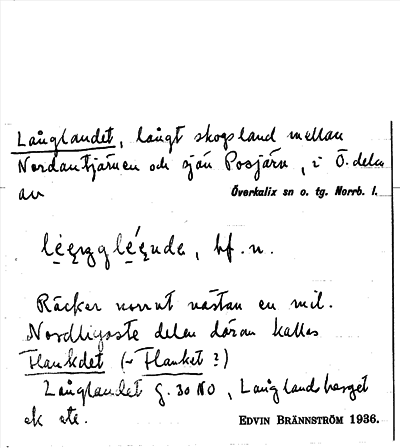 Långlandet, långt skogsland mellan
Nordantjärnen och sjön Posjärv, i Ö. delen
av Överkalix sn o. tg. Norrb. l.
bf. n.
Räcker norrut nästan en mil.
Nordligaste delen däran kallas
Flankdet (~ Flanket?)
Långlandet g. 30 NO, Långlandsberget
ek etc. EDVIN BRÄNNSTRÖM 1936.